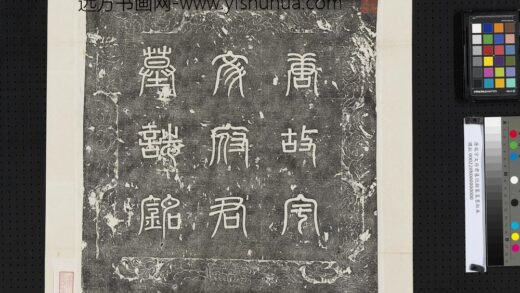 远方书画网-www.yishuhua.com
唐故宇
文府君
墓誌銘